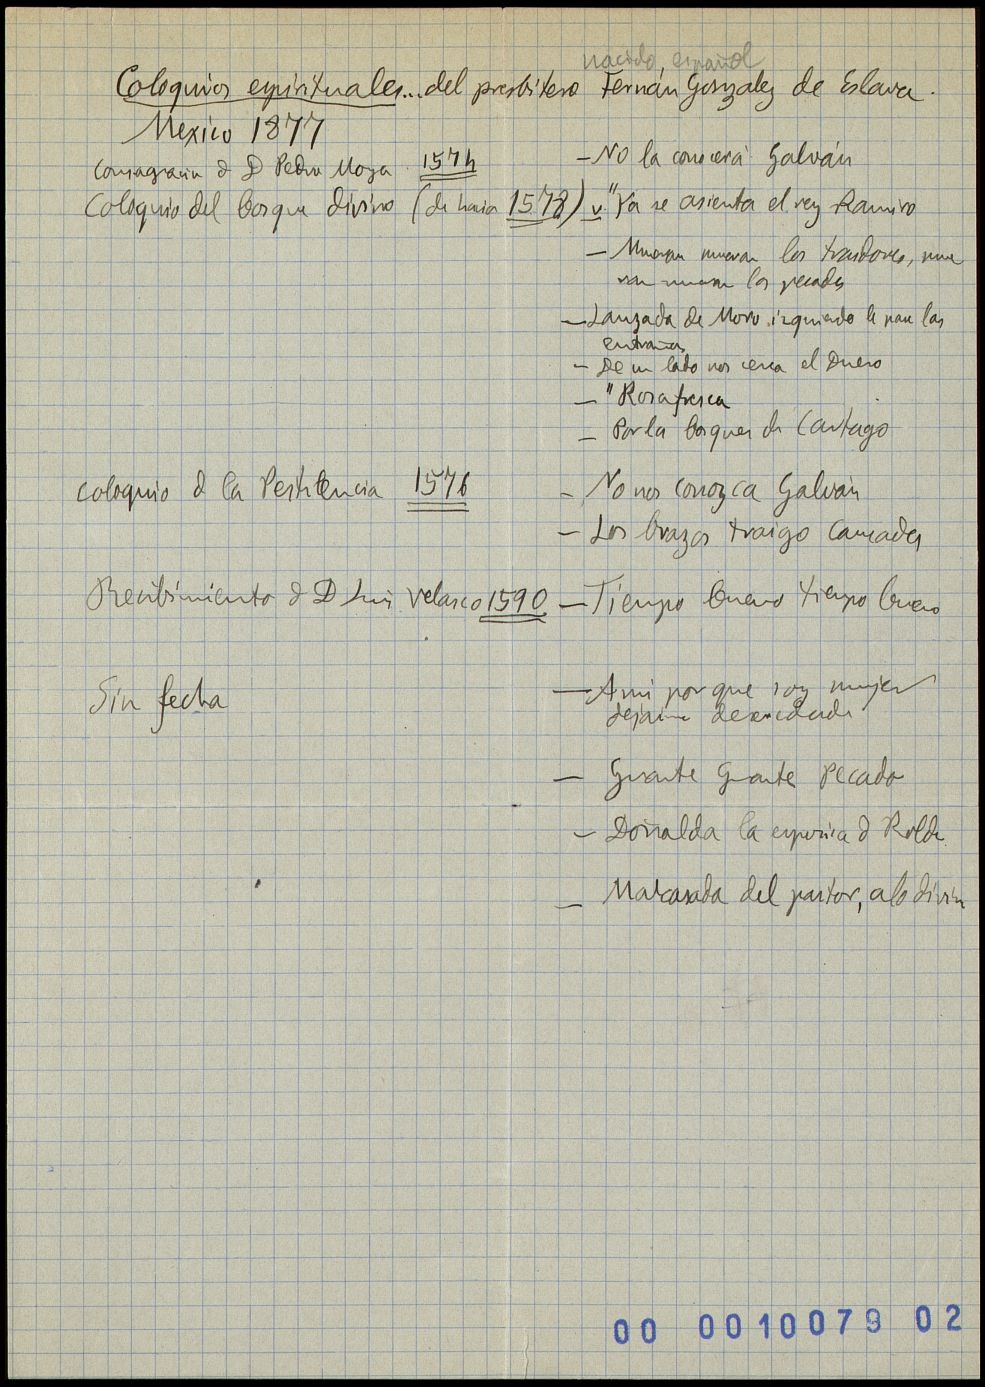 nacido, español
Coloquios espirituales... del presbitero Fernán Gonzalez de Eslava.
Mexico 1877
Consagracion d D Pedro Moya 1574
– No la conocerá Galván
Coloquio del bosque divino (de hacia 1578) v. "Ya se asienta el rey Ramiro
– Mueran mueran los traidores, mue
ran mueran los pecados
– Lanzada de Moro izquierdo le pase las
entrañas
– De un lado nos cerca el Duero
– " Rosa fresca
– Por los bosques de Cartago
Coloquio d la Pestilencia 1576
– No nos conozca Galván
– Los brazos traigo cansados
Recibimiento d D Luis Velasco 1590 – Tiempo bueno tiempo bueno
Sin fecha
– A mi porque soy mujer
dejaime
– Guarte Guarte Pecado
– Doñalda la esposica d Rolda
– Malcasada del pastor, a lo divin
00 0010079 02